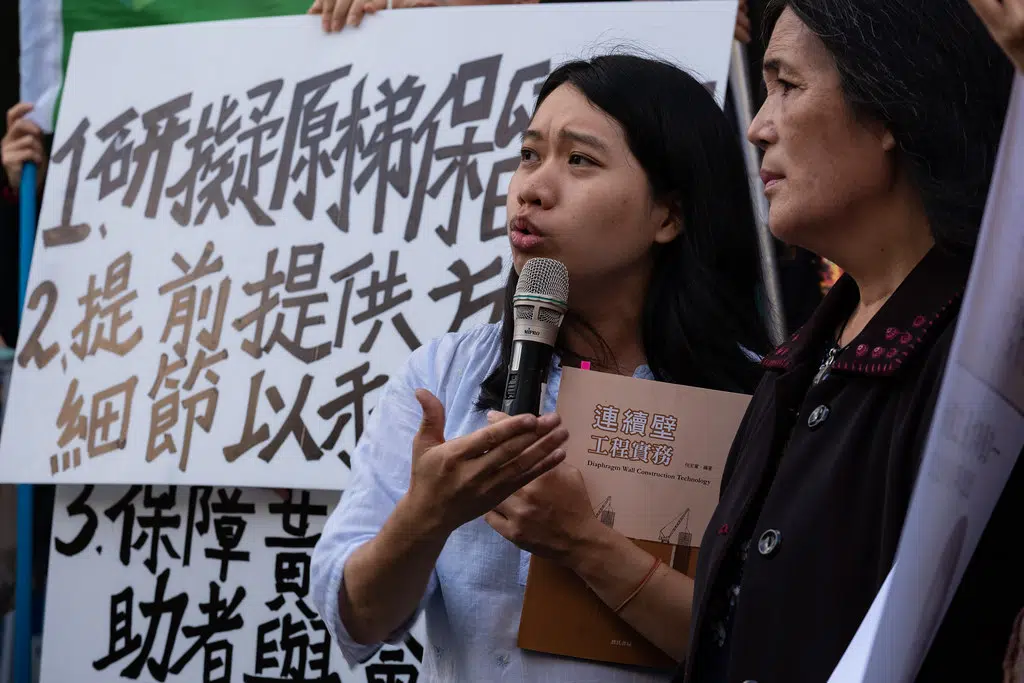 1.研擬原梯保留
2.提前提供
細節以
3.保障黃
助者與會
連續壁
工程實務
Diaphragm Wall Construction Technology